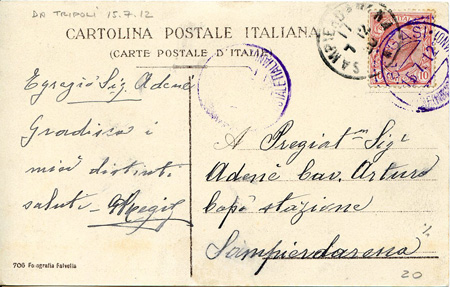 DA TRIPOLI 15.7.12
CARTOLINA POSTALE ITALIANA
(CARTE POSTALE D'ITALIE)
SAMPIERDARENA
BENGASI
10
Egregio Sig Adené
Gradisca i
miei distinti
saluti
A Pregiat.m Sig.
Adené Cav. Arturo
Capo stazione
Sampierdarena
706 Fotografia Falsella
20